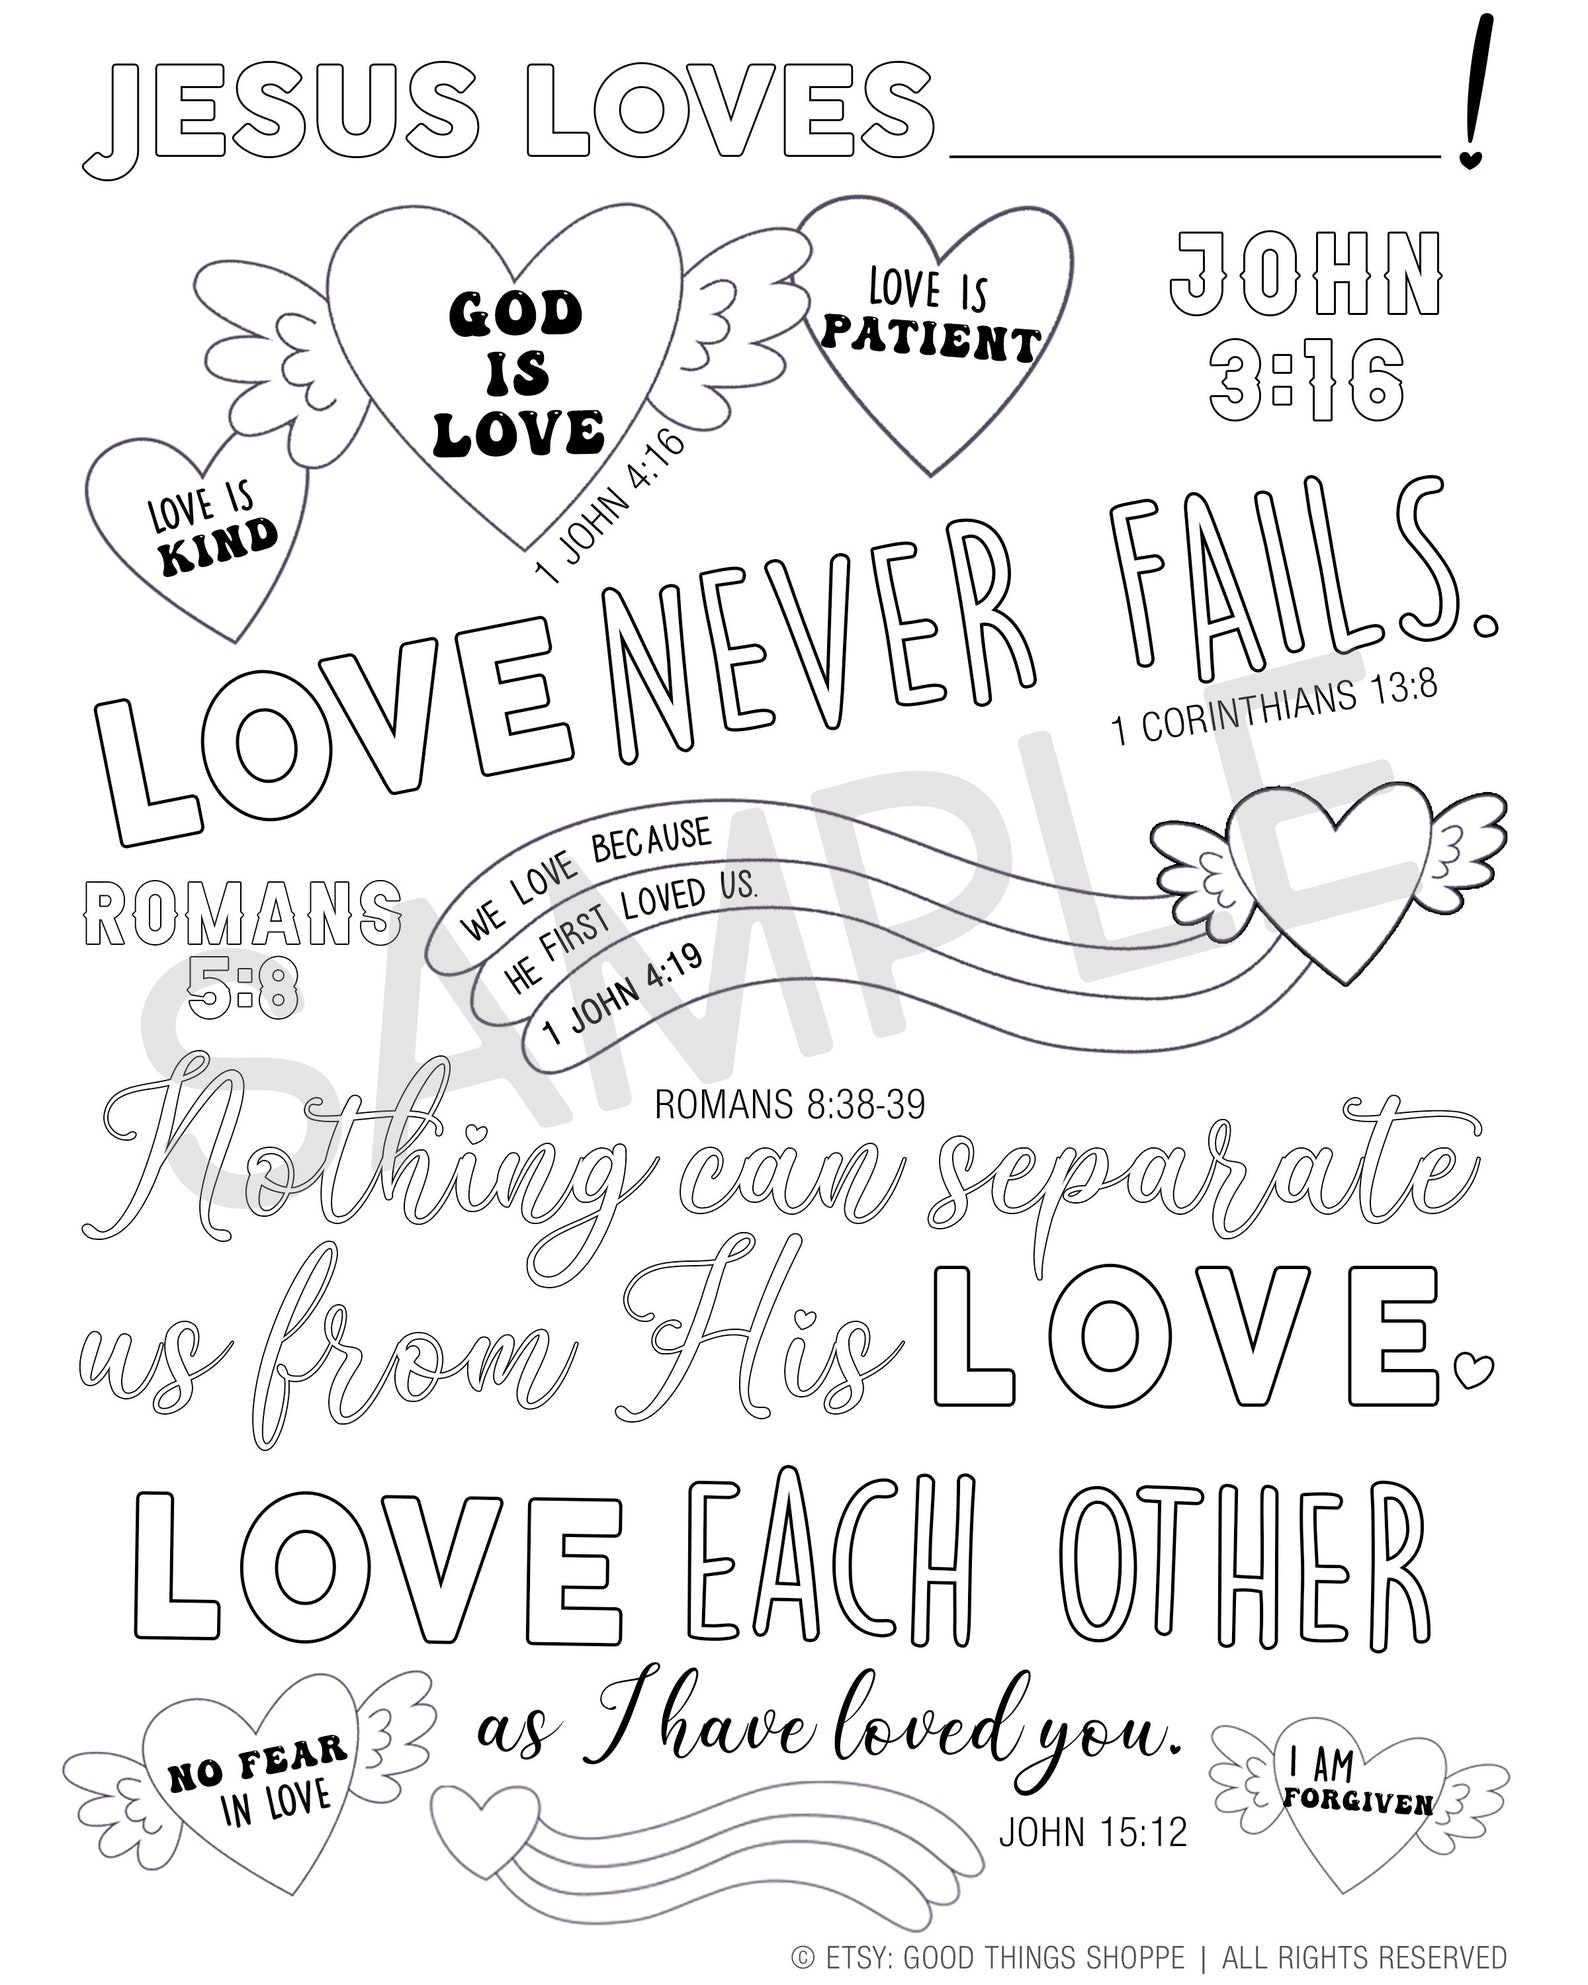 JESUS LOVES ____________!
GOD
IS
LOVE
1 JOHN 4:16
LOVE IS
PATIENT
JOHN
3:16
LOVE IS
KIND
LOVE NEVER FAILS.
1 CORINTHIANS 13:8
ROMANS
5:8
WE LOVE BECAUSE
HE FIRST LOVED US.
1 JOHN 4:19
SAMPLE
ROMANS 8:38-39
Nothing can separate
us from His LOVE.
LOVE EACH OTHER
as I have loved you.
JOHN 15:12
NO FEAR
IN LOVE
I AM
FORGIVEN
© ETSY: GOOD THINGS SHOPPE | ALL RIGHTS RESERVED